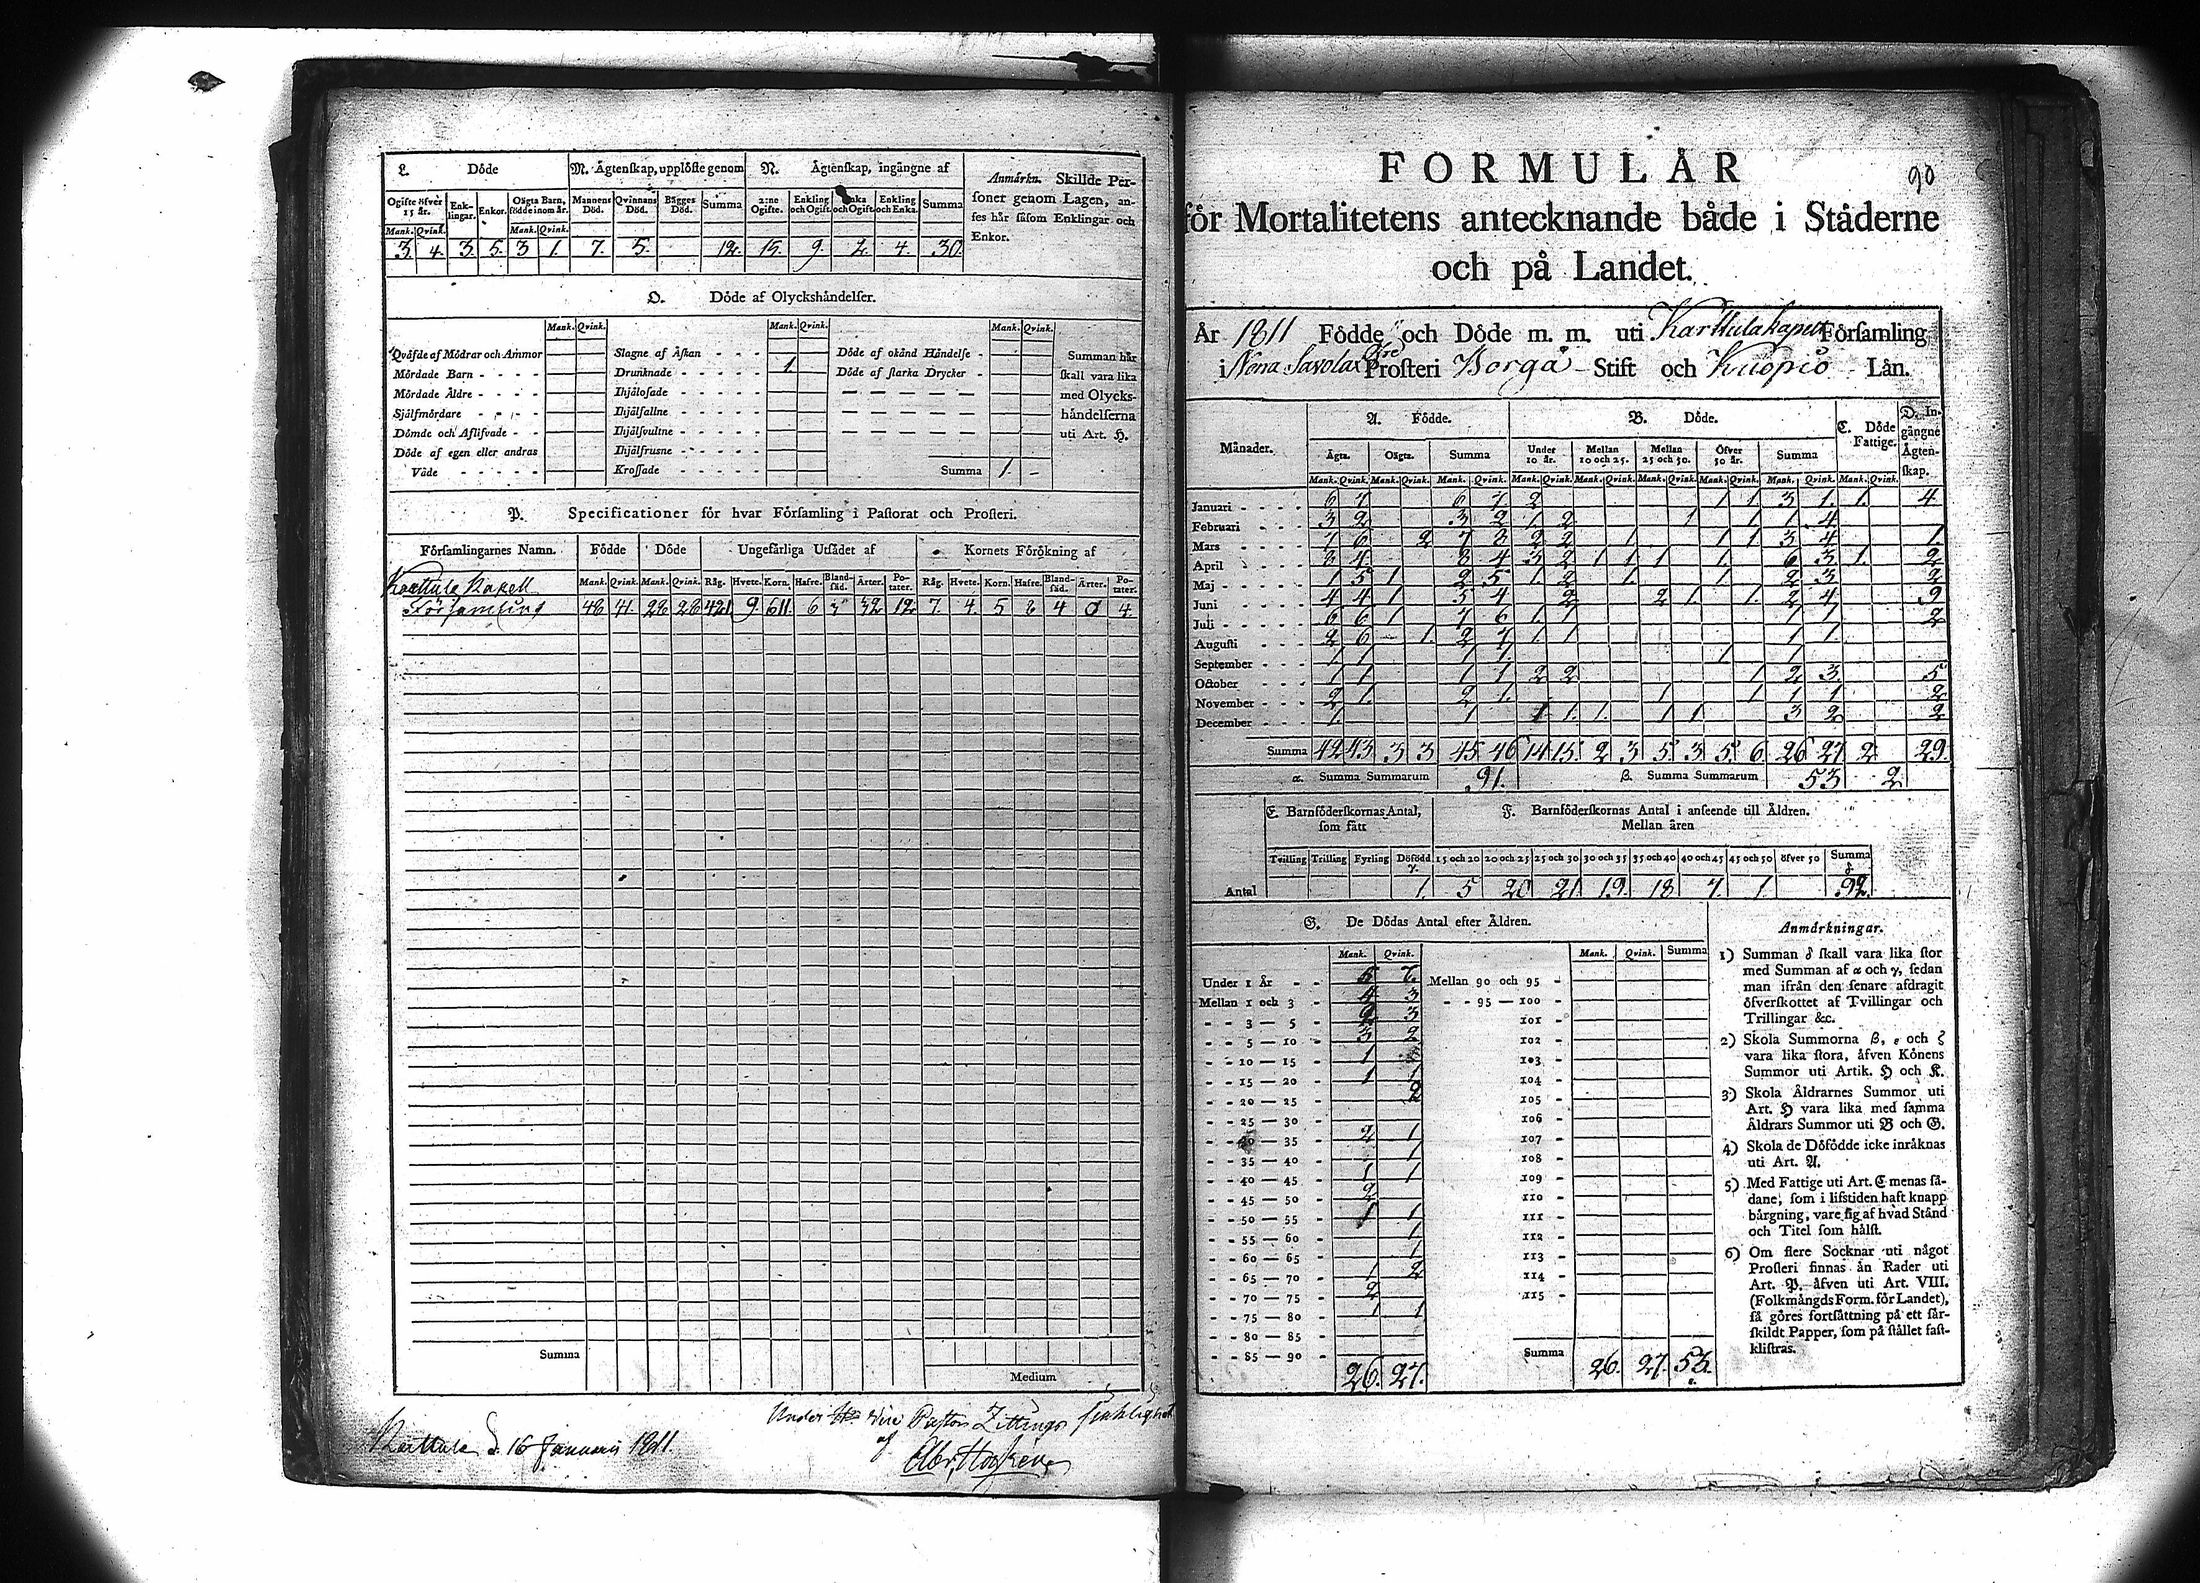 L. Döde
M. Ägtenskap, upplöste genom
N. Ägtenskap, ingångne af
Anmärkn. Skillde Per-
soner genom Lagen, an-
ses här såsom Enklingar och
Enkor.
Ogifte öfver 15 år. Enk-lingar. Enkor. Oägta Barn, födde inom år. Mannens Död. Qvinnans Död. Bägges Död. Summa 2:ne Ogifte. Enkling och Ogift. Enka och Ogift. Enkling och Enka. Summa
Mank. Qvink. Mank. Qvink.
3. 4. 3. 5. 3 1. 7. 5. 12. 15. 9. 2. 4. 30.
O. Döde af Olyckshändelser.
Mank. Qvink. Mank. Qvink. Mank. Qvink.
Qväfde af Mödrar och Ammor Slagne af Åskan Döde af okänd Händelse Summan här
Mördade Barn Drunknade 1 Döde af starka Drycker skall vara lika
Mördade Äldre Ihjälosade med Olycks-
Självmördare Ihjälfallne händelserna
Dömde och Aflifvade Ihjälsvultne uti Art. H.
Döde af egen eller andras Ihjälfrusne
Våde Krossade Summa 1. -
P. Specificationer för hvar Församling i Pastorat och Prosteri.
Församlingarnes Namn. Födde Döde Ungefärliga Utsädet af Kornets Förökning af
Mank. Qvink. Mank. Qvink. Råg. Hvete. Korn. Hafre. Bland-säd. Ärter. Po-tater. Råg. Hvete. Korn. Hafre. Bland-säd. Ärter. Po-tater.
Karttula Kapell
Församling 48 41. 28 28 421 9 611. 6 3 32 12 7. 4. 5 8 4 0 4.
Summa
Medium
Karttula d. 16 Januarii 1811.
Under Vice Pastor Zittings
af
FORMULÄR
90
för Mortalitetens antecknande både i Städerne
och på Landet.
År 1811 Födde och Döde m. m. uti Karttula kapell Församling
i Norra Savolax Öfre Prosteri Borgå Stift och Kuopio Län.
Månader. A. Födde. B. Döde. C. Döde Fattige. D. In-gångne Ägten-skap.
Ägta. Oägta. Summa Under 10 år. Mellan 10 och 25. Mellan 25 och 50. Öfver 50 år. Summa
Mank. Qvink. Mank. Qvink. Mank. Qvink. Mank. Qvink. Mank. Qvink. Mank. Qvink. Mank. Qvink. Mank. Qvink. Mank. Qvink.
Januari 6 7 6 7 2 1 1 3 1. 1. 4
Februari 3 2 3 2 1. 2 1 1 1 4
Mars 7 6 2 7 8 2 2 1 1 1 3 4 1.
April 8 4 8 4 3 2 1 1 1 1. 6 3 1. 2
Maj 1 5 1 2 5 1. 2 1. 1 2 3 2
Juni 4 4 1 5 4 2 2 1. 1. 2 4 9
Juli 6 6 1 7 6 1. 1 1 1 2
Augusti 2 6 1. 2 7 1. 1 1 1.
September 1. 1 1 1. 1 1
October 1 1 1 1 2 2 1 2 3 5
November 2 1. 2 1. 1 1 1 1 2
December 1. 1 1 1. 1. 1 1 3 2 2
Summa 42 43 3 3 45 46 14 15. 2 3 5. 3 5 6 26 27 2 29.
α. Summa Summarum 91. β. Summa Summarum 53 2
E. Barnföderskornas Antal, som fått F. Barnföderskornas Antal i anseende till Åldren.
Mellan åren
Tvilling Trilling Fyrling Döfödd 15 och 20 20 och 25 25 och 30 30 och 35 35 och 40 40 och 45 45 och 50 öfver 50 Summa
Antal 1. 5 20 21. 19. 18 7. 1 92.
G. De Dödas Antal efter Åldren.
Mank. Qvink. Mank. Qvink. Summa
Under 1 År 5 7. Mellan 90 och 95
Mellan 1 och 3 4 3 95 — 100
3 — 5 2 3 101
5 — 10 3 2 102
10 — 15 1 103
15 — 20 1 1 104
20 — 25 2 105
25 — 30 106
30 — 35 2 1 107
35 — 40 1 108
40 — 45 1 1 109
45 — 50 2 110
50 — 55 1 1 111
55 — 60 1 112
60 — 65 1 113
65 — 70 1 2 114
70 — 75 2 115
75 — 80 1 1
80 — 85
85 — 90
26. 27. Summa 26. 27. 53.
Anmärkningar.
1) Summan δ skall vara lika stor
med Summan af α och γ, sedan
man ifrån den senare afdragit
öfverskottet af Tvillingar och
Trillingar &c.
2) Skola Summorna β, ε och ζ
vara lika stora, äfven Könens
Summor uti Artik. H och K.
3) Skola Åldrarnes Summor uti
Art. H vara lika med samma
Åldrars Summor uti B och G.
4) Skola de Döfödde icke inräknas
uti Art. A.
5) Med Fattige uti Art. C menas så-
dane, som i lifstiden haft knapp
bärgning, vare sig af hvad Stånd
och Titel som hälst.
6) Om flere Socknar uti något
Prosteri finnas än Rader uti
Art. P. äfven uti Art. VIII.
(Folkmängds Form. för Landet),
så göres fortsättning på ett sär-
skildt Papper, som på stället fast-
klistras.